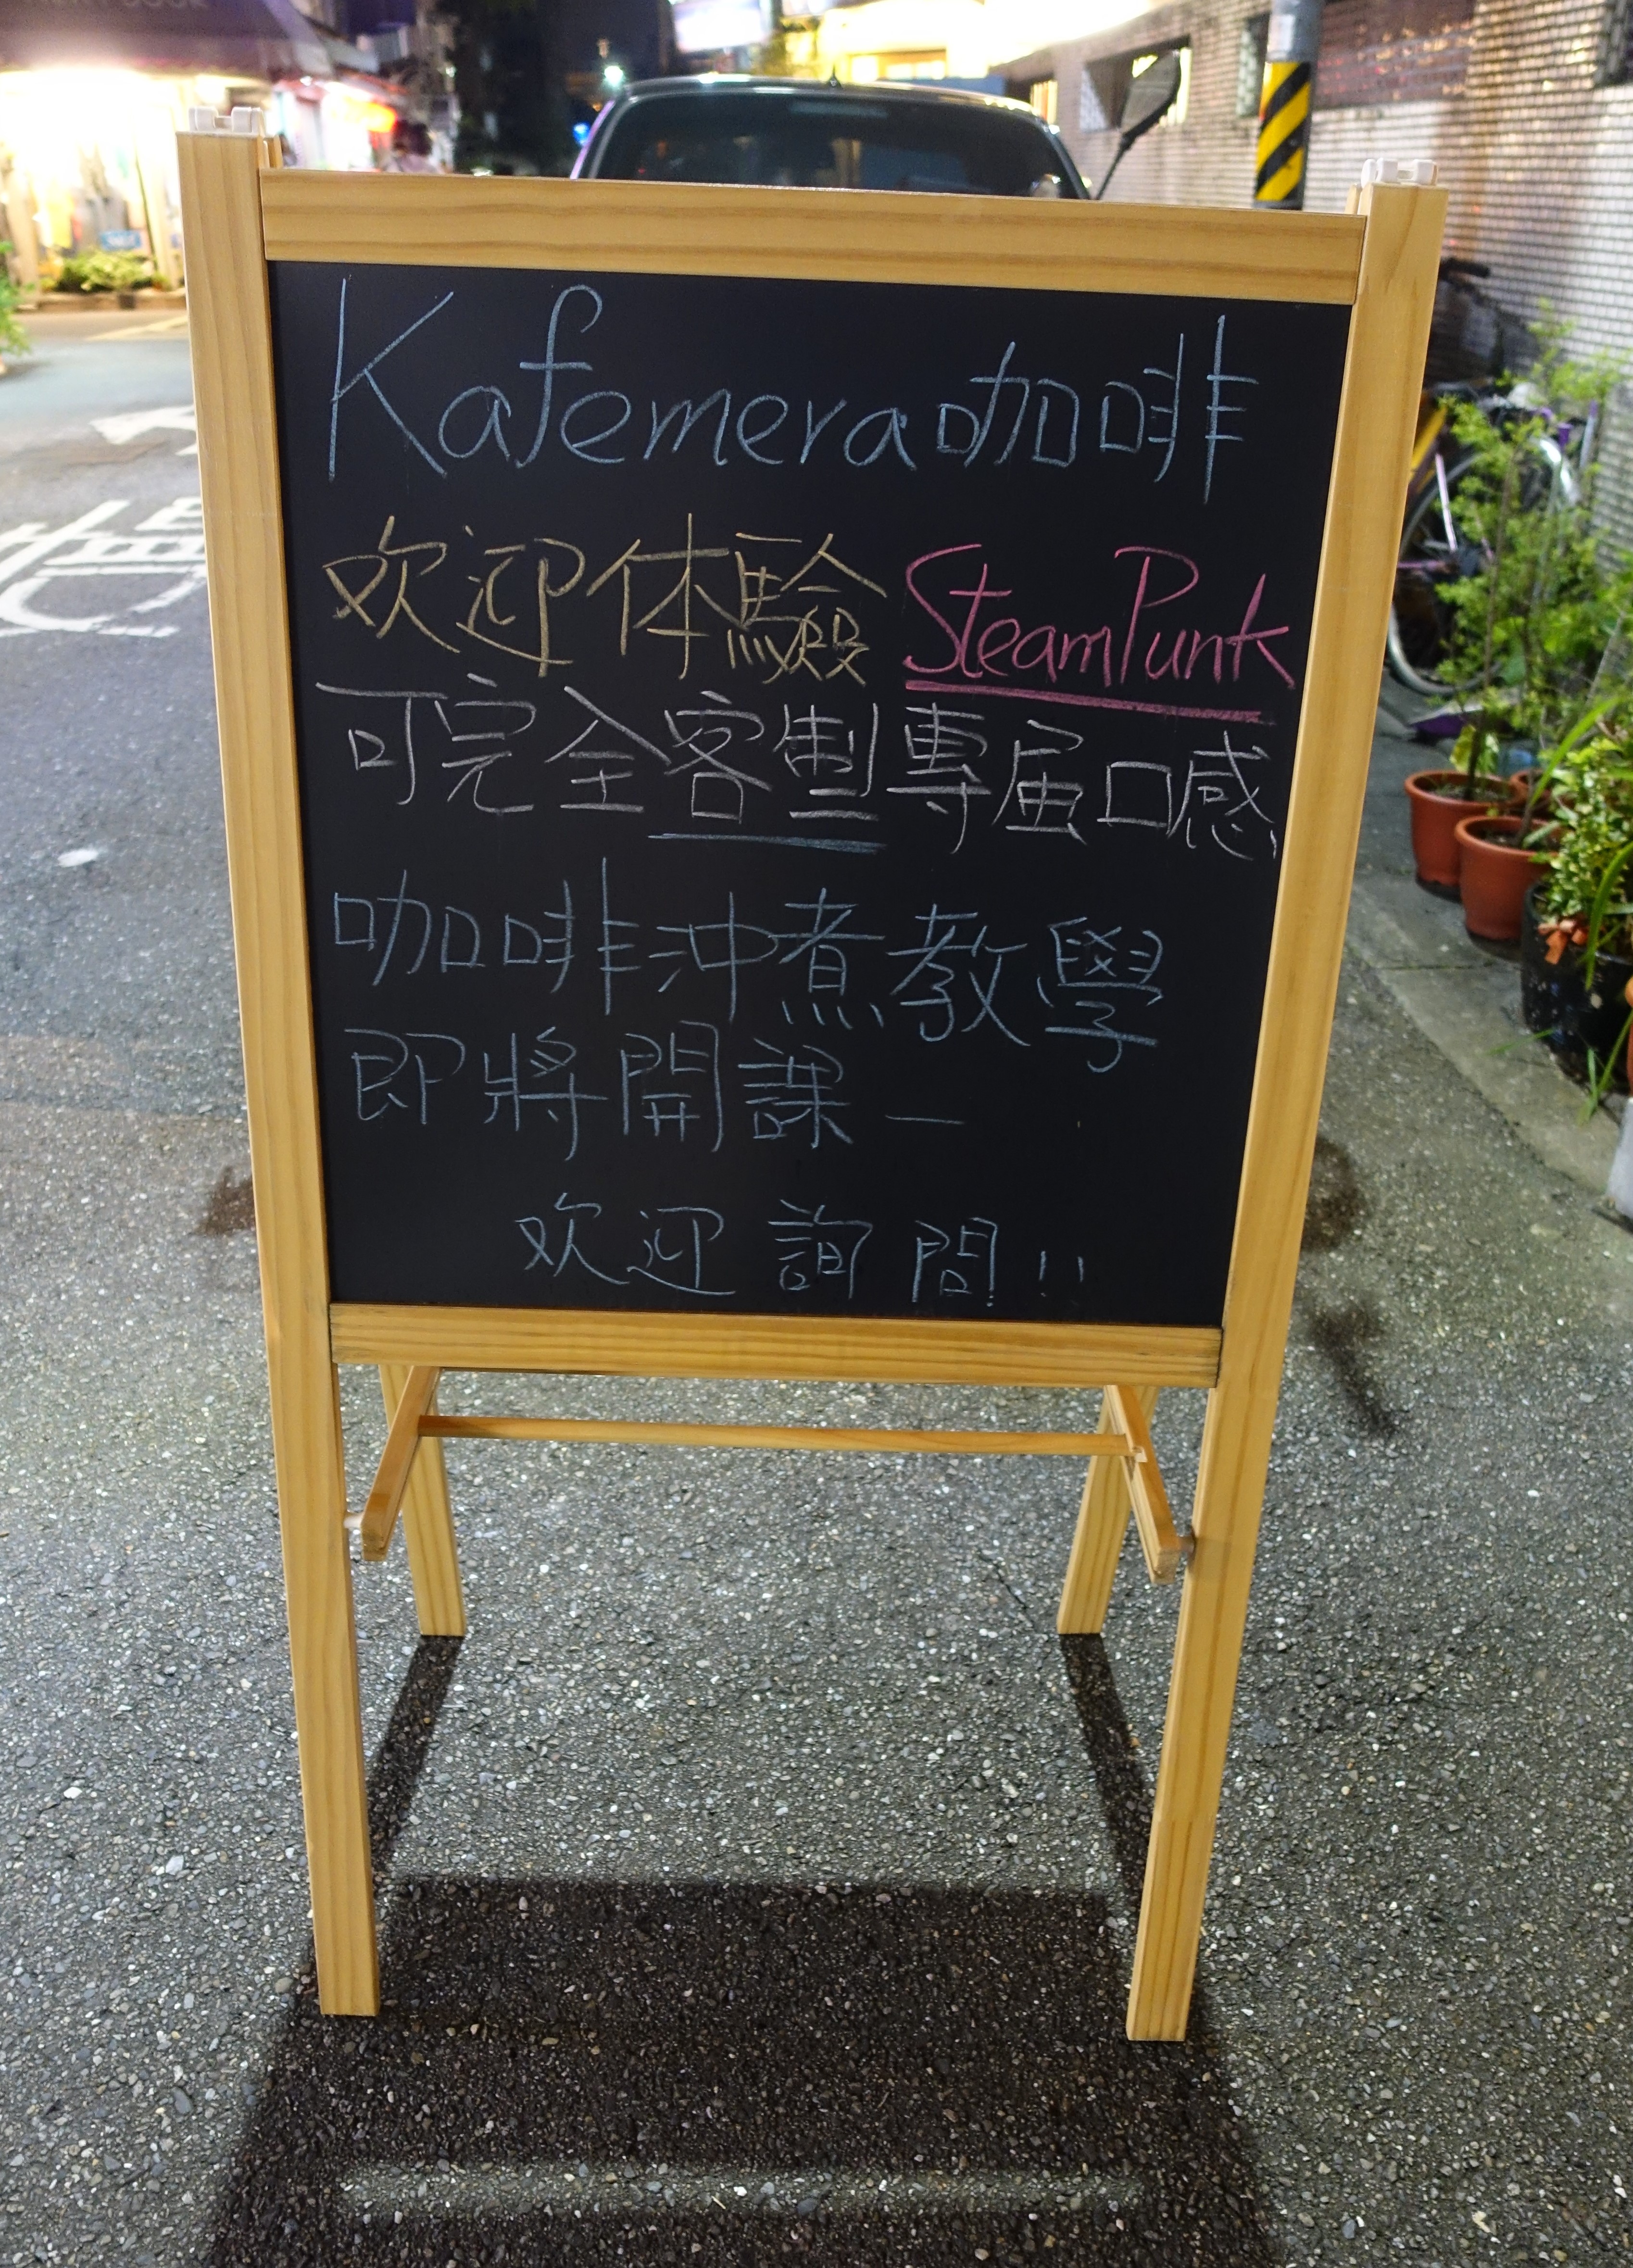 Kafemera咖啡
欢迎体驗 SteamPunk
可完全客製專届口感
咖啡沖煮教學
即將開課—
欢迎詢問!!